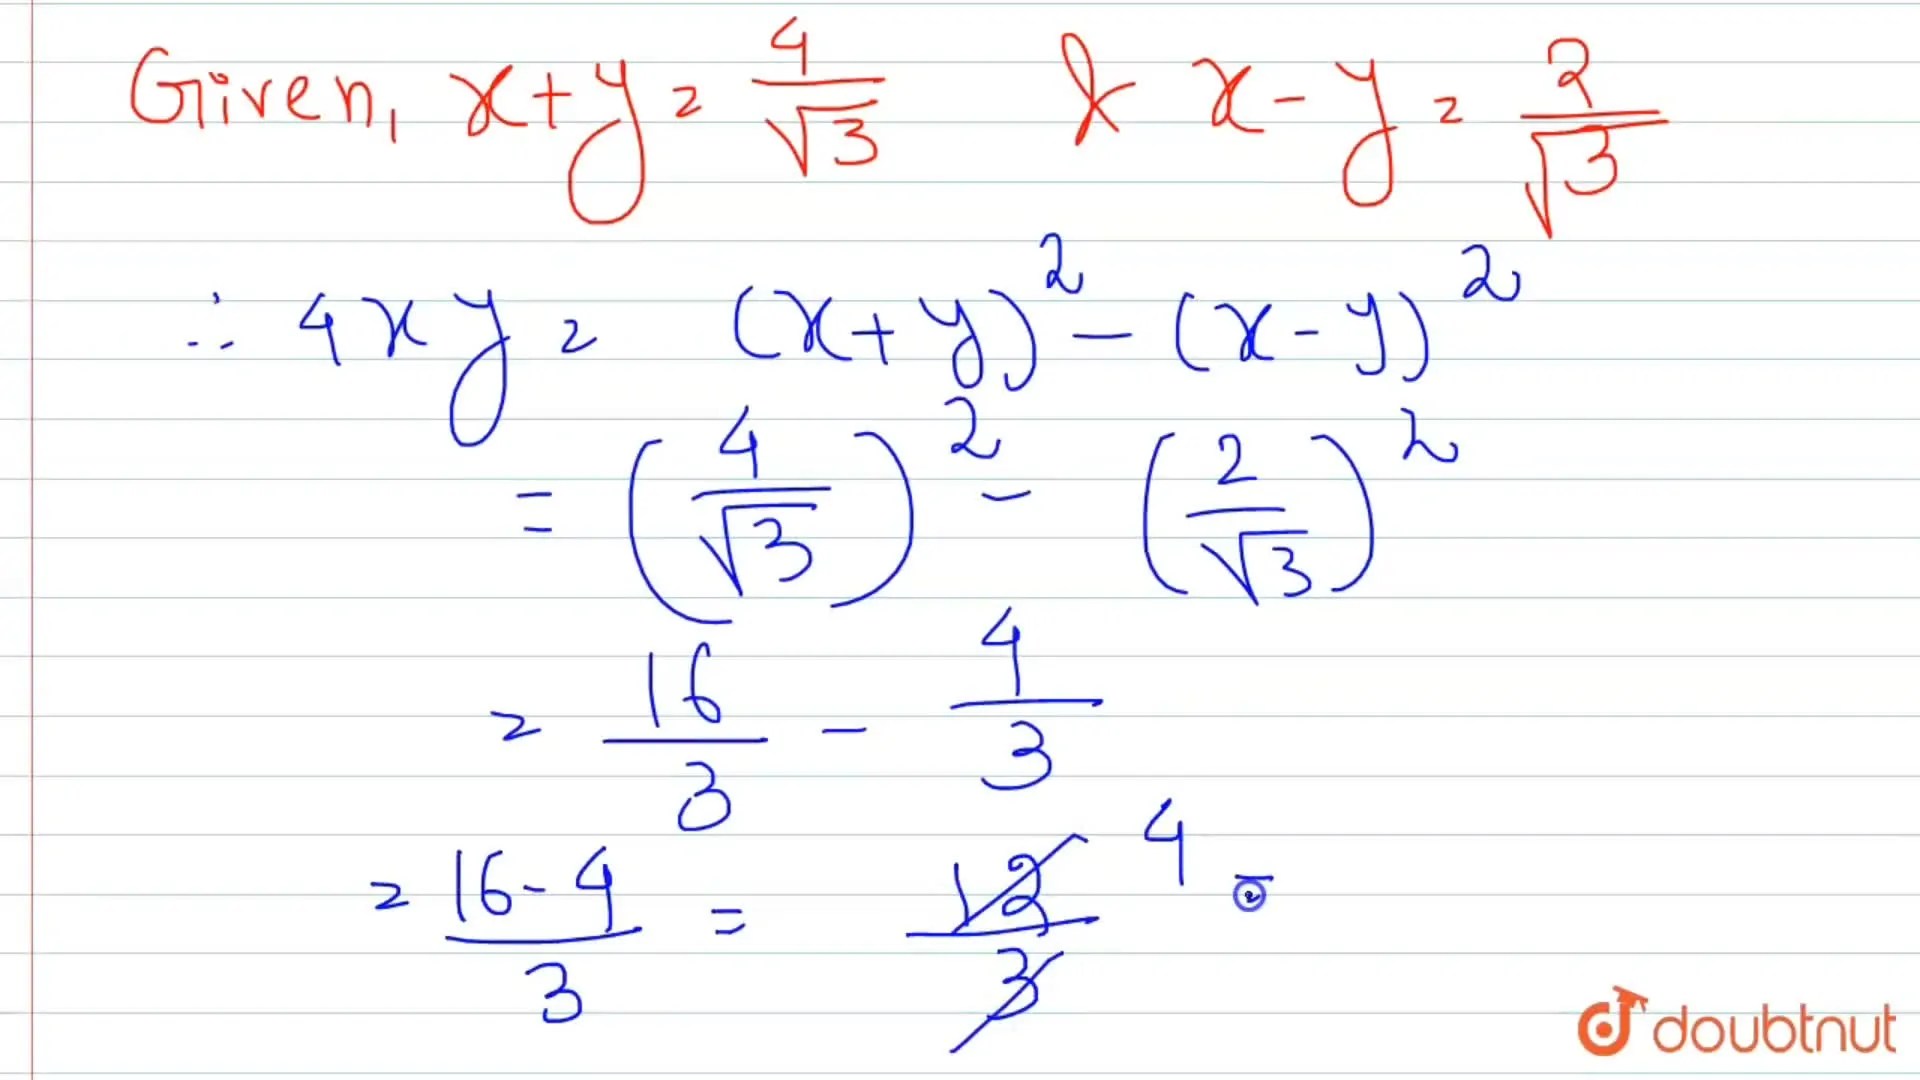 Given, x+y = 4/√3 & x-y = 2/√3
∴ 4xy = (x+y)² - (x-y)²
= (4/√3)² - (2/√3)²
= 16/3 - 4/3
= 16-4/3 = 12/3 4 =
doubtnut